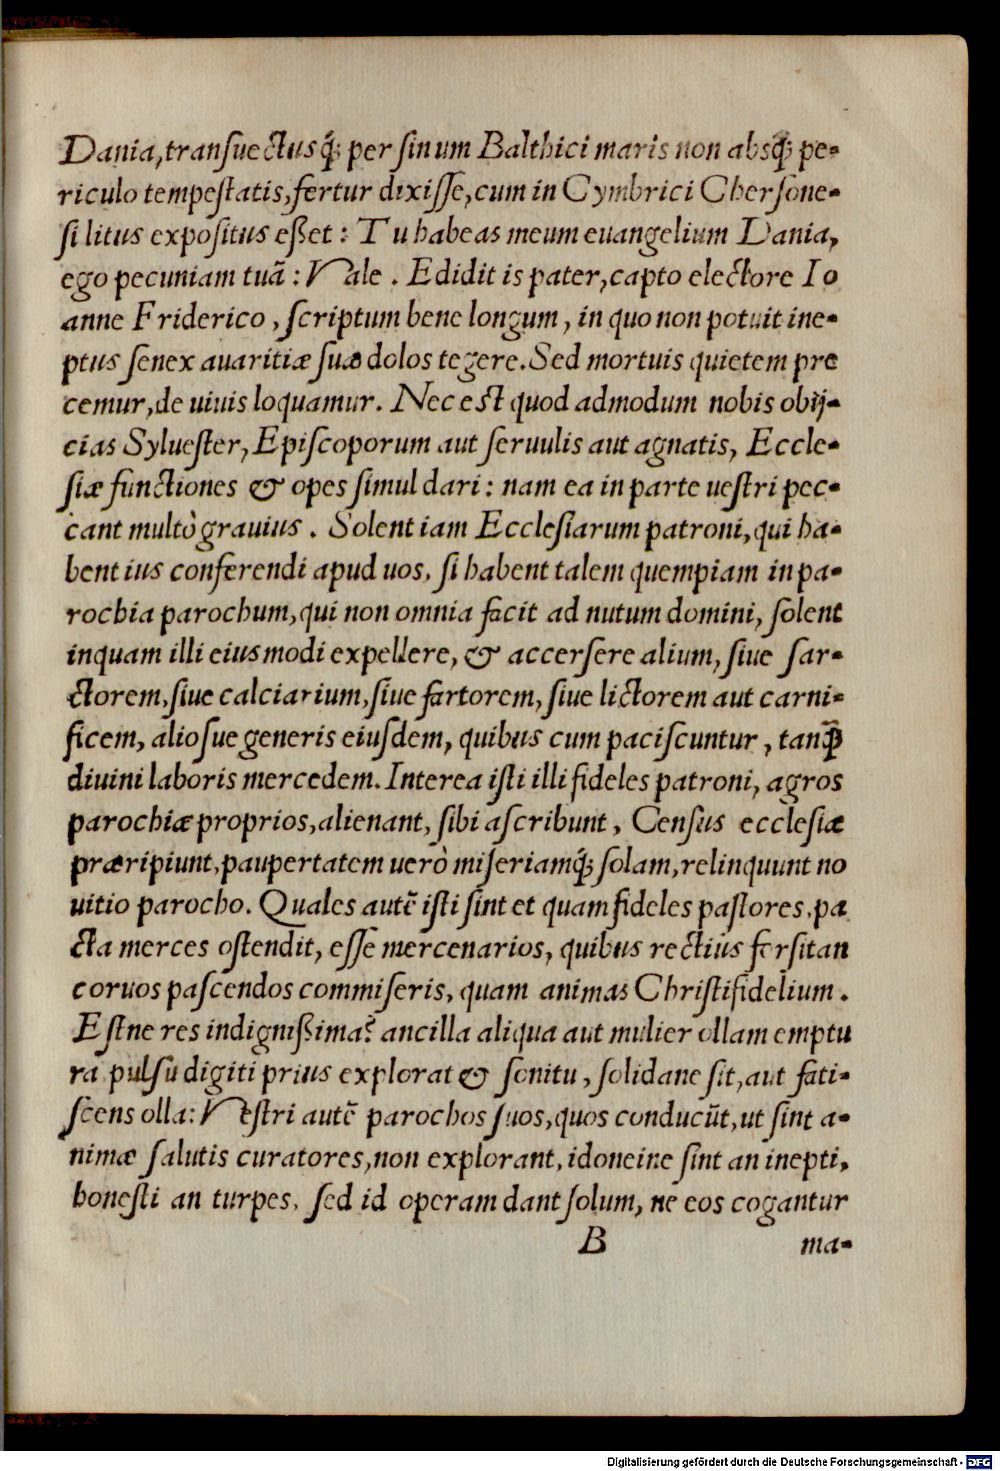 Dania, tranſuectusq́; per ſinum Balthici maris non absq́; pe-
riculo tempeſtatis, fertur dixiſſe, cum in Cymbrici Cherſone-
ſi litus expoſitus eßet: Tu habeas meum euangelium Dania,
ego pecuniam tuã: Vale. Edidit is pater, capto electore Io
anne Friderico, ſcriptum bene longum, in quo non potuit ine-
ptus ſenex auaritiæ ſuæ dolos tegere. Sed mortuis quietem pre
cemur, de uiuis loquamur. Nec eſt quod admodum nobis obij-
cias Sylueſter, Epiſcoporum aut ſeruulis aut agnatis, Eccle-
ſiæ functiones & opes ſimul dari: nam ea in parte ueſtri pec-
cant multò grauius. Solent iam Eccleſiarum patroni, qui ha-
bent ius conferendi apud uos, ſi habent talem quempiam in pa-
rochia parochum, qui non omnia facit ad nutum domini, ſolent
inquam illi eiusmodi expellere, & accerſere alium, ſiue ſar-
ctorem, ſiue calciarium, ſiue fartorem, ſiue lictorem aut carni-
ficem, alioſue generis eiuſdem, quibus cum paciſcuntur, tanq̃
diuini laboris mercedem. Interea iſti illi fideles patroni, agros
parochiæ proprios, alienant, ſibi aſcribunt, Cenſus eccleſiæ
præripiunt, paupertatem uerò miſeriamq́; ſolam, relinquunt no
uitio parocho. Quales autẽ iſti ſint et quam fideles paſtores, pa
cta merces oſtendit, eſſe mercenarios, quibus rectius forſitan
coruos paſcendos commiſeris, quam animas Chriſtifidelium.
Eſtne res indignißima? ancilla aliqua aut mulier ollam emptu
ra pulſu digiti prius explorat & ſonitu, ſolidane ſit, aut fati-
ſcens olla: Veſtri autẽ parochos ſuos, quos conducũt, ut ſint a-
nimæ ſalutis curatores, non explorant, idoneine ſint an inepti,
honeſti an turpes, ſed id operam dant ſolum, ne eos cogantur
B ma-
Digitalisierung gefördert durch die Deutsche Forschungsgemeinschaft - DFG